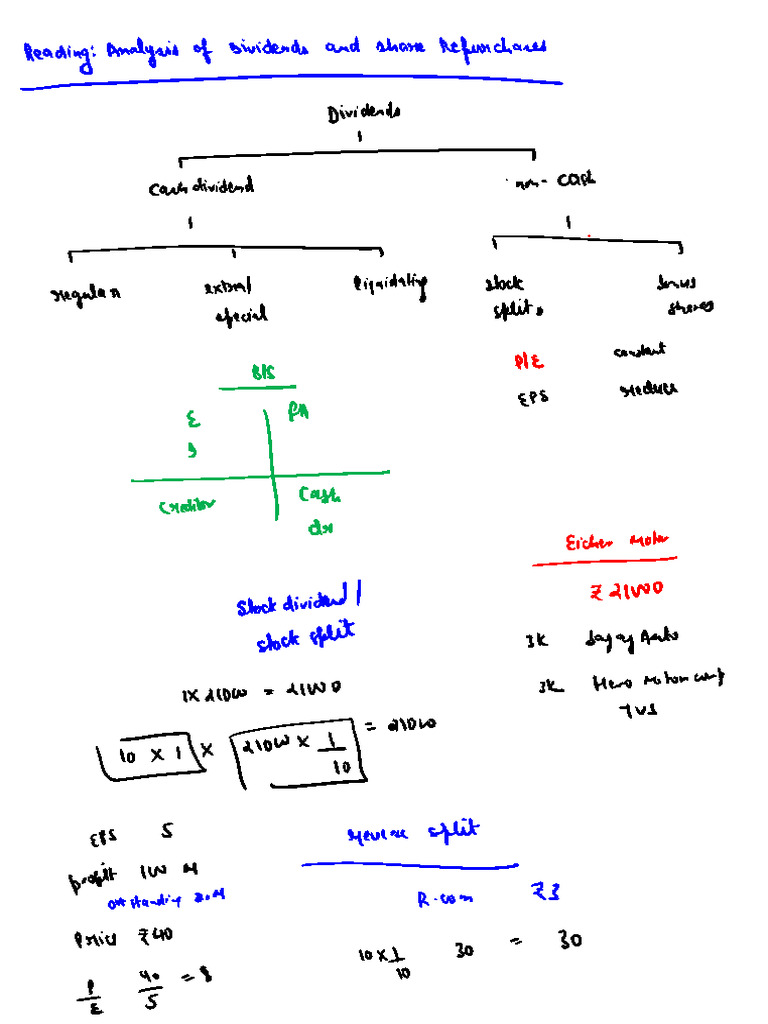 Reading: Analysis of Dividends and share Repurchases
Dividends
Cash dividend
non-cash
regular
extra/
special
liquidating
stock
splits
bonus
shares
P/E constant
EPS reduces
B/S
E FA
D
Creditor Cash
dr
Eicher Motor
₹ 21000
Stock dividend/
stock split
3K Bajaj Auto
3K Hero Motor corp
TVS
1 x 21000 = 21000
10 x 1 x 21000 x 1/10 = 21000
EPS 5
profit 100 M
Outstanding 20M
Price ₹40
P/E 40/5 = 8
reverse split
R.com ₹3
10 x 1/10 30 = 30